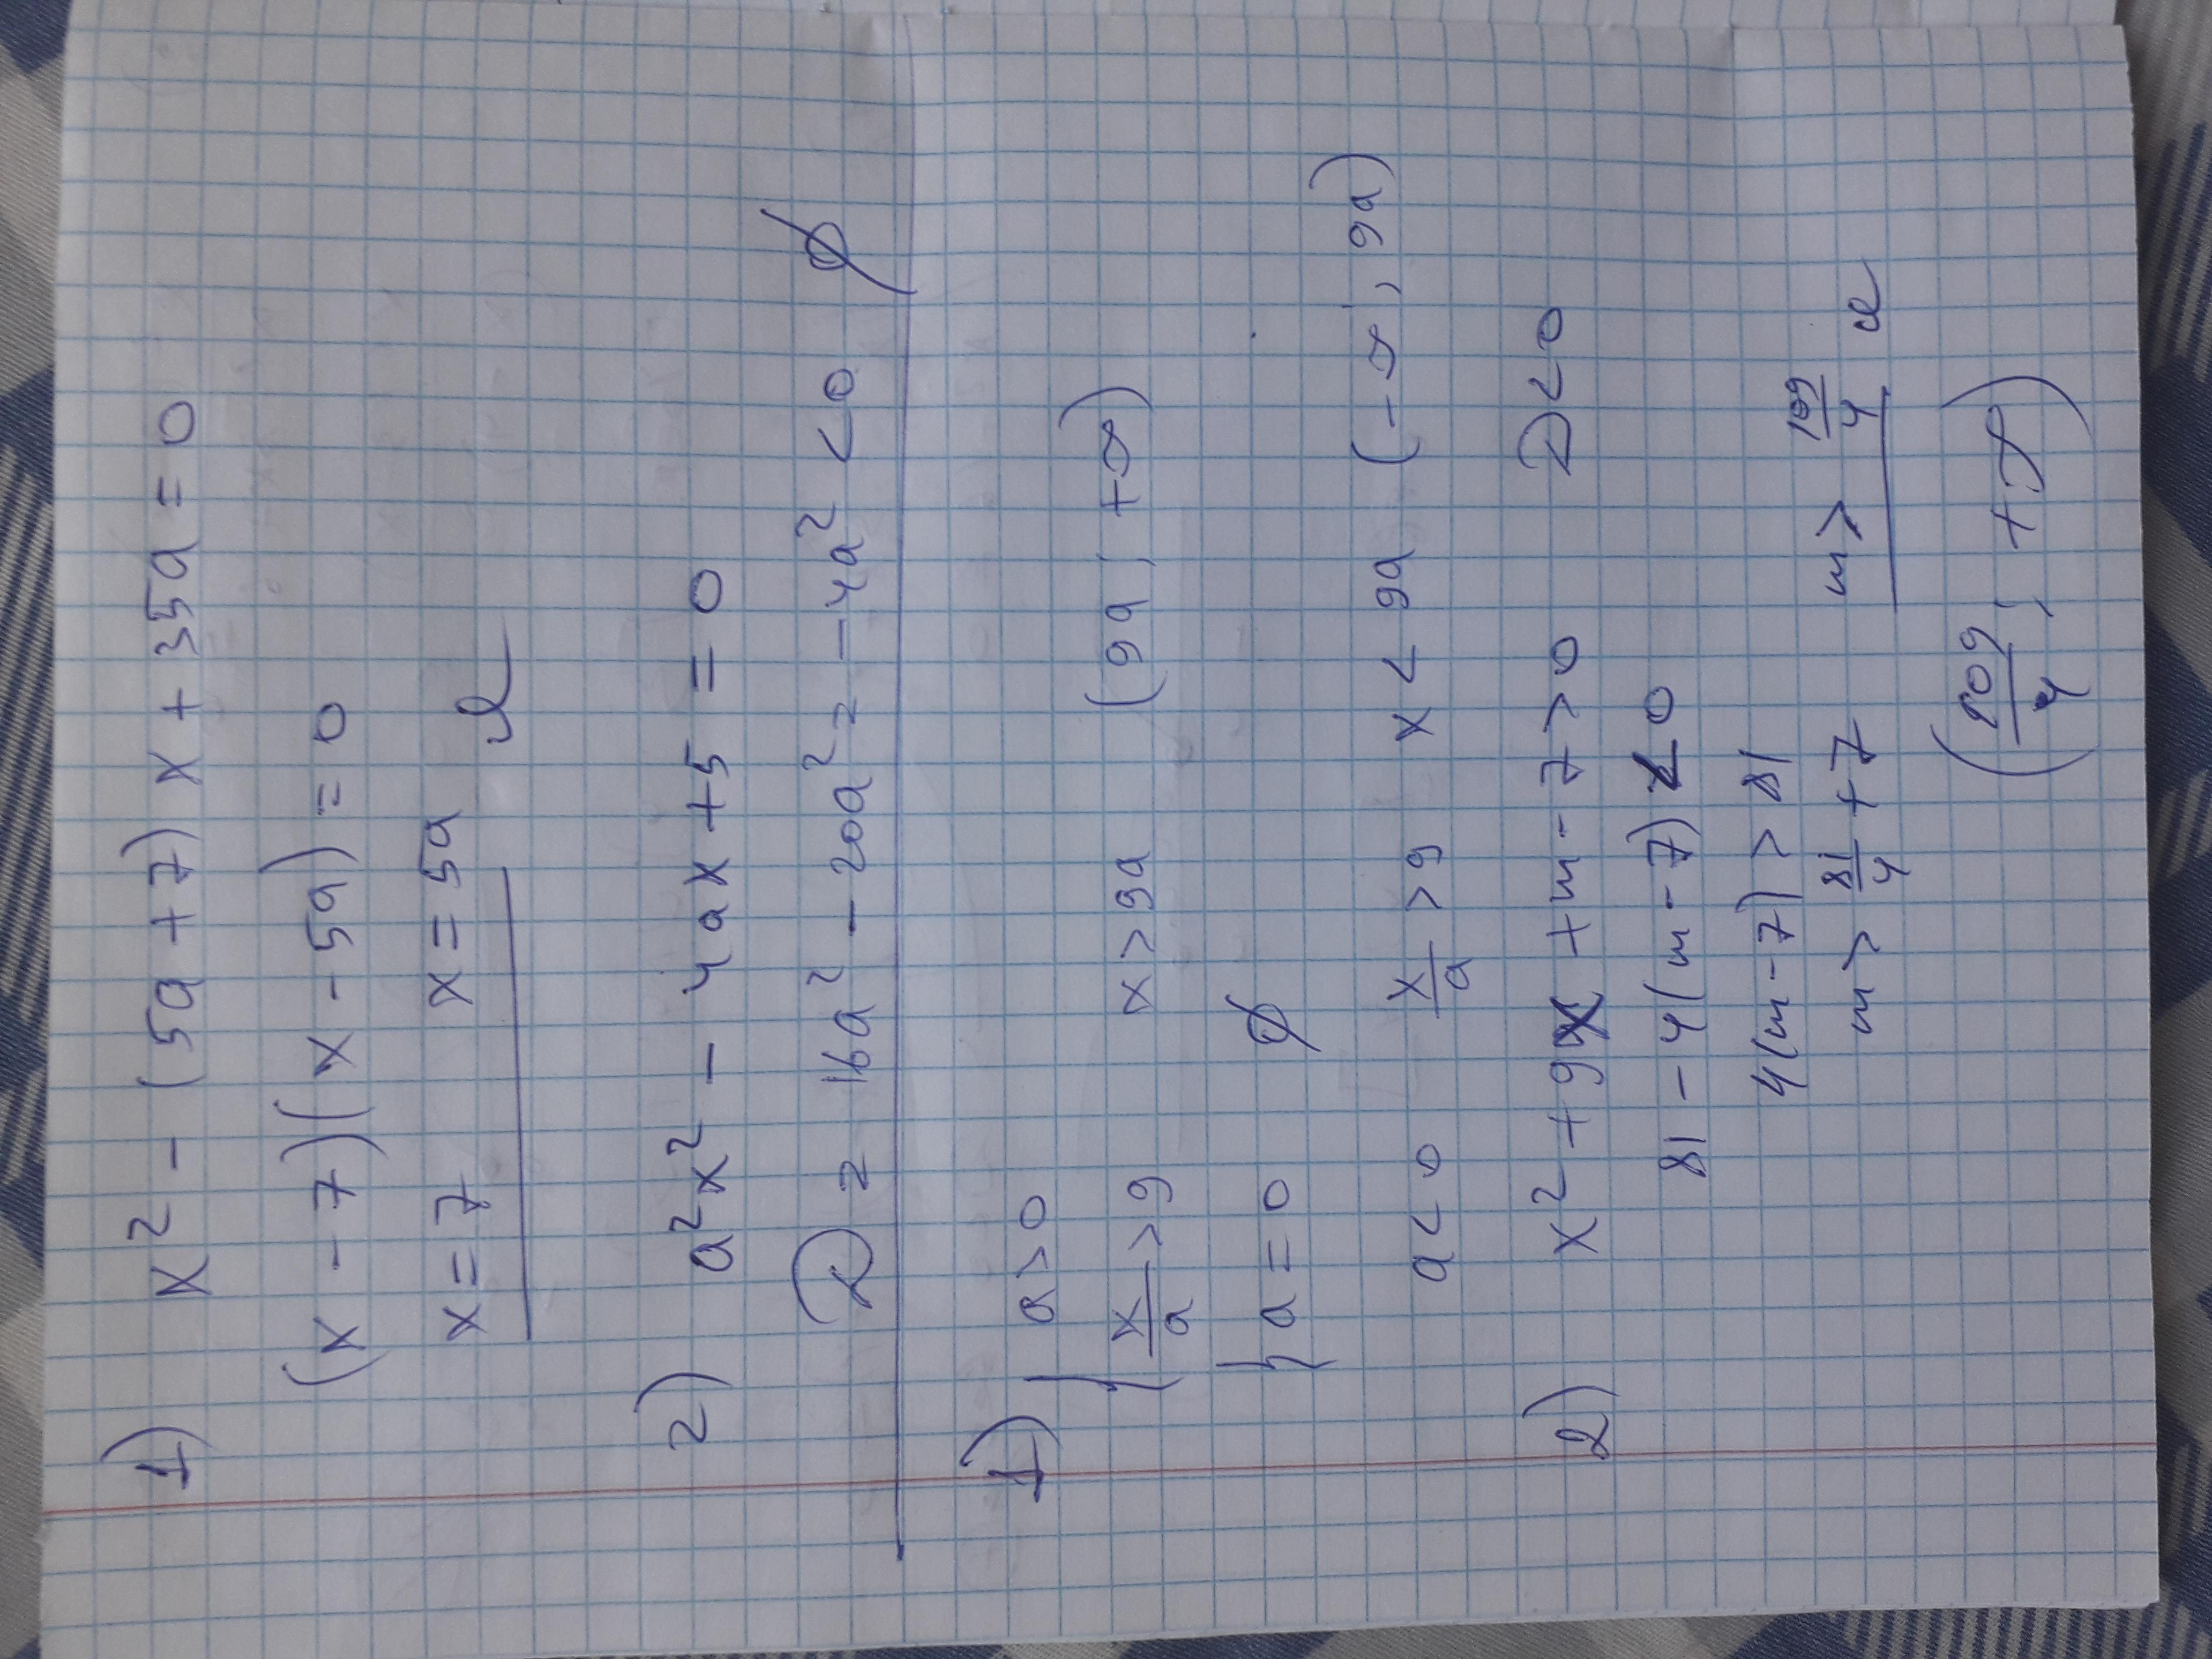 1) x² - (5a + 7)x + 35a = 0
(x - 7)(x - 5a) = 0
x = 7 x = 5a
2) a²x² - 4ax + 5 = 0
D = 16a² - 20a² = -4a² < 0 ∅
1) { a > 0
x/a > 9 x > 9a (9a; +∞)
{ a = 0 ∅
a < 0 x/a > 9 x < 9a (-∞; 9a)
2) x² + 9x + m - 7 > 0 D < 0
81 - 4(m - 7) < 0
4(m - 7) > 81
m > 81/4 + 7 m > 109/4
(109/4; +∞)